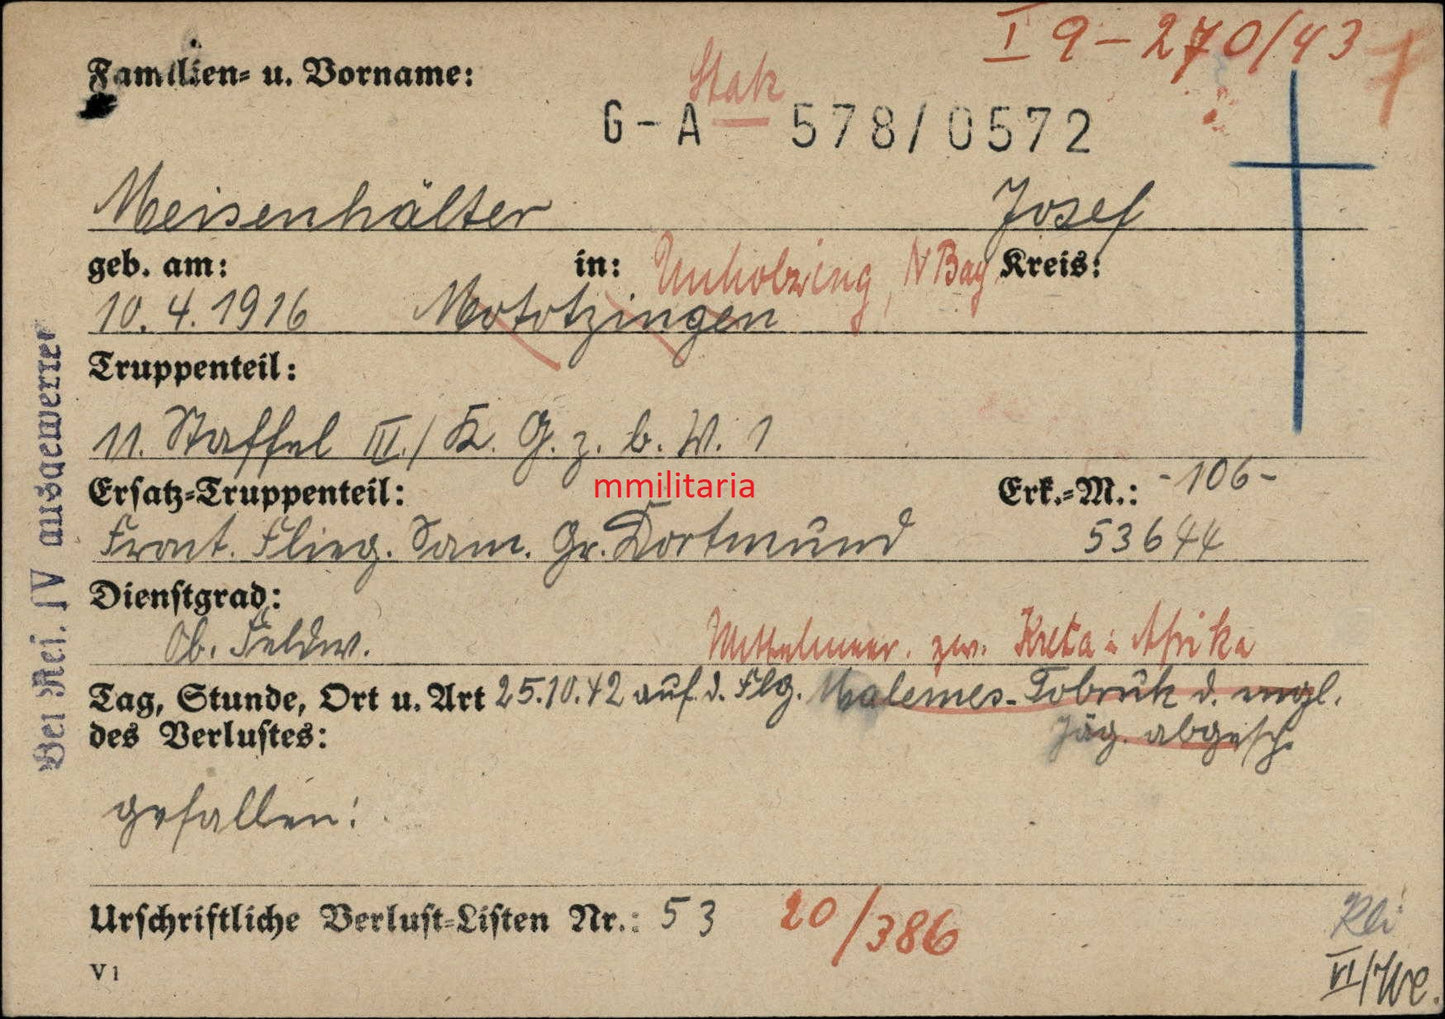 I 9-270/43
Familien- u. Vorname:
Stak
G-A 578/0572
Meisenhälter Josef
geb. am: in: Unholzing, NBay Kreis:
10.4.1916 Mototzingen
Truppenteil:
11. Staffel III./K.G.z.b.W. 1
Ersatz-Truppenteil: mmilitaria Erk.-M.: -106-
Front. Flieg. Sam. Gr. Dortmund 53644
Dienstgrad:
Ob. Feldw. Mittelmeer. zw. Kreta u Afrika
Tag, Stunde, Ort u. Art 25.10.42 auf d. Flg. Malemes-Tobruk d. engl.
des Verlustes: Jäg. abgesch.
gefallen:
Urschriftliche Verlust-Listen Nr.: 53 20/386
V1
VI/We.
Bei Ref. IV ausgewertet